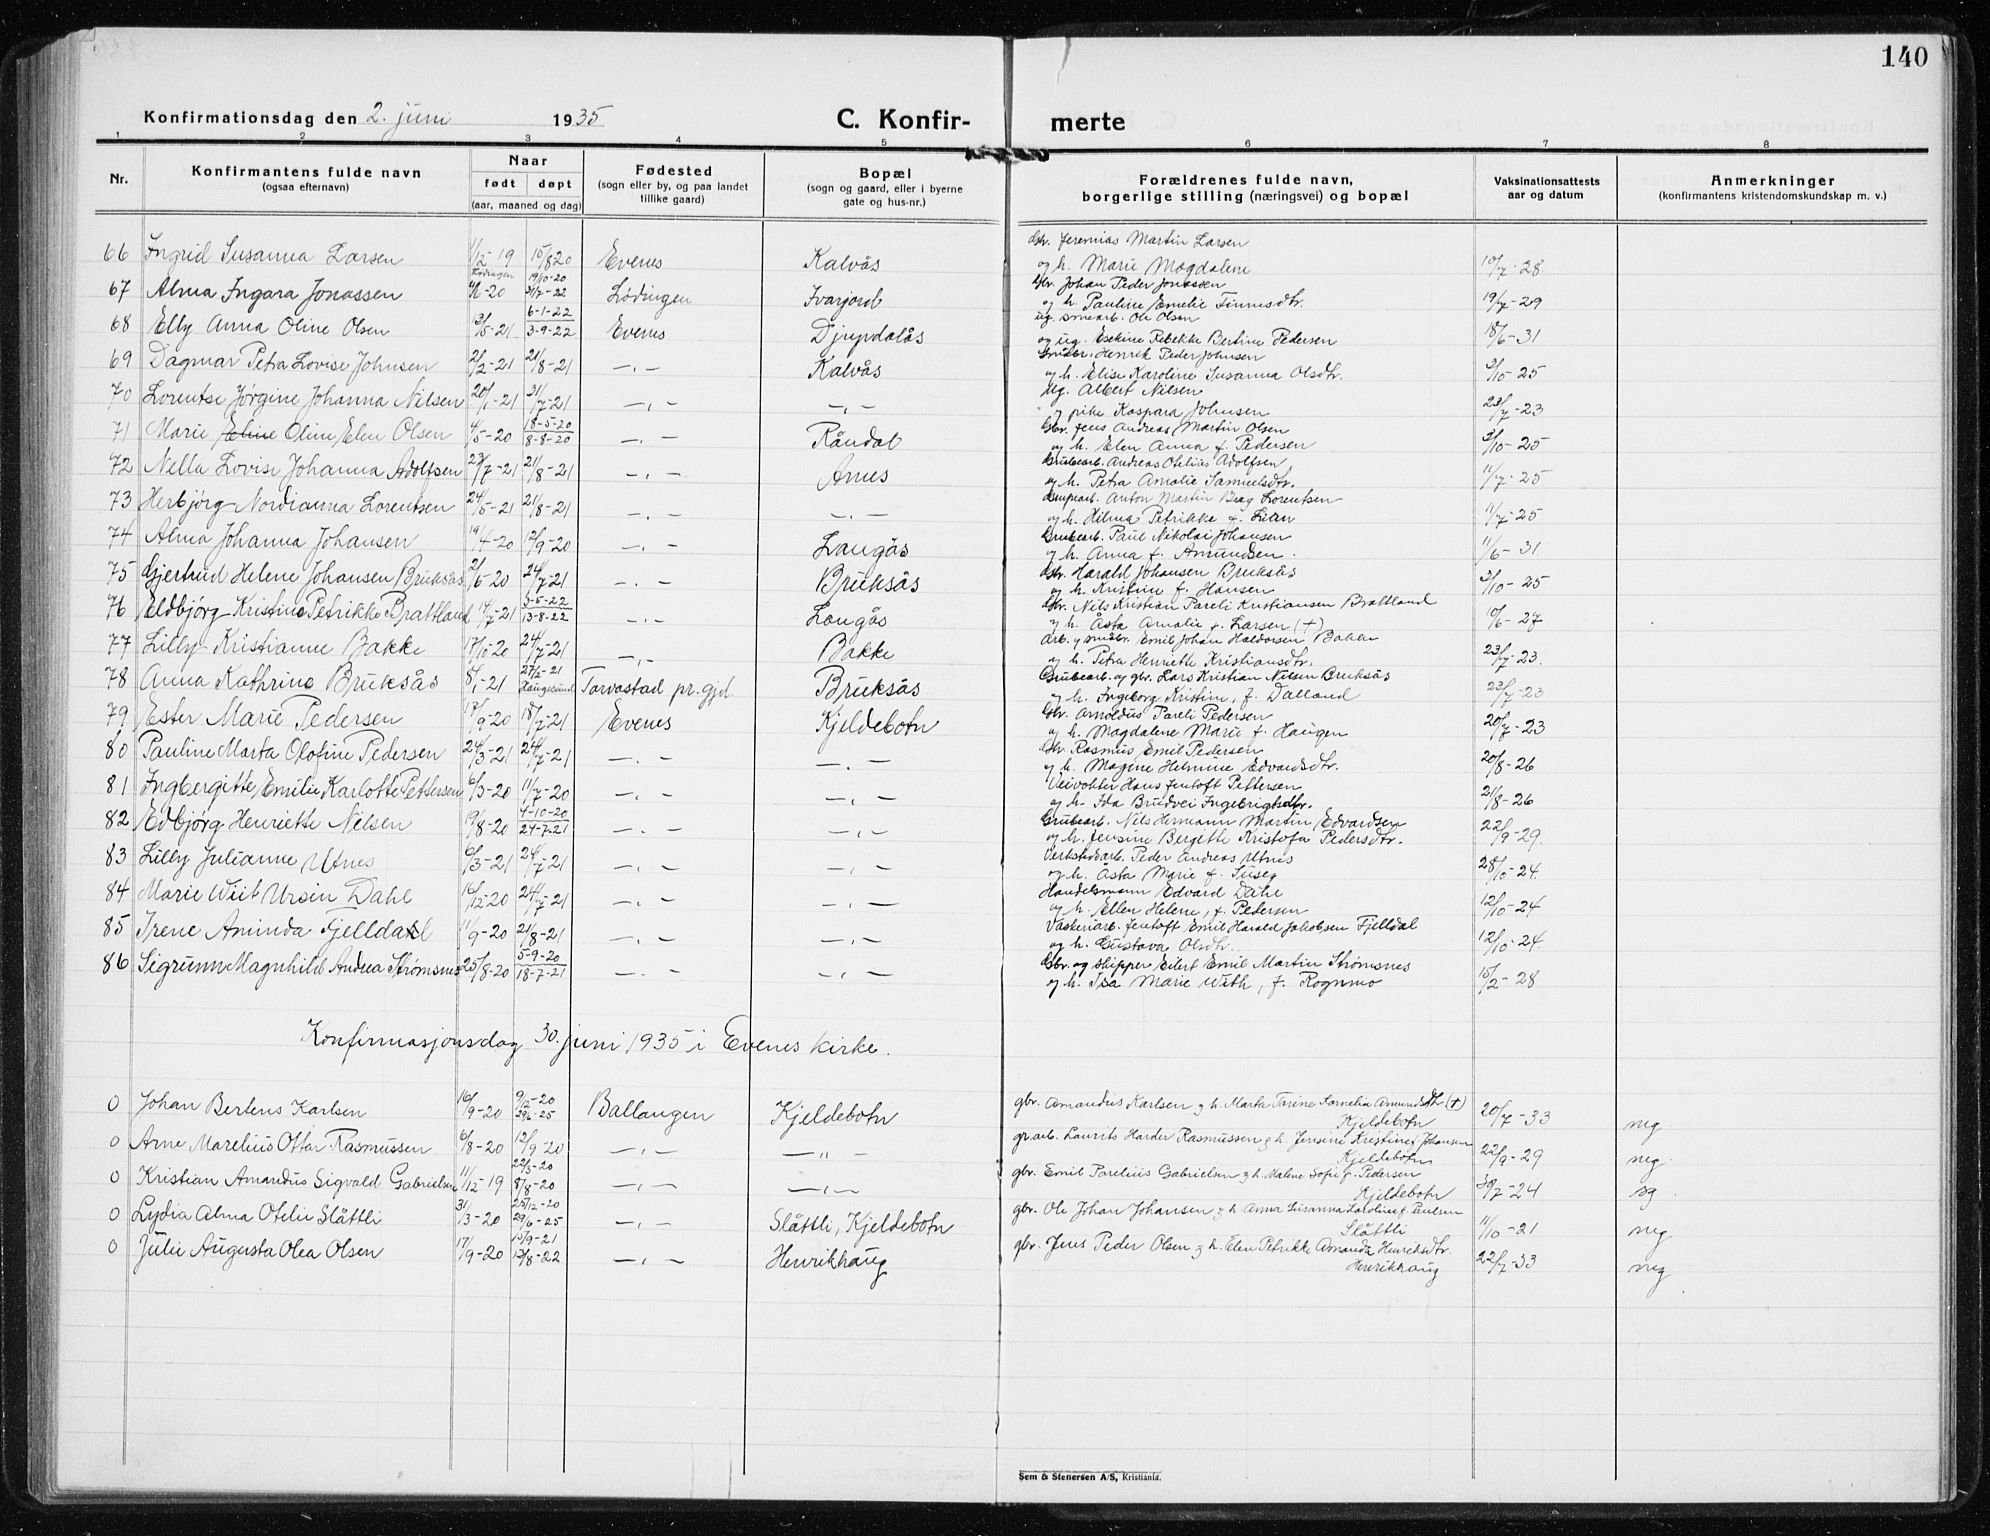 140
Konfirmationsdag den 2. juni 1935 C. Konfir- merte
1 2 3 4 5 6 7 8
Nr. Konfirmantens fulde navn (ogsaa efternavn) Naar født døpt (aar, maaned og dag) Fødested (sogn eller by, og paa landet tillike gaard) Bopæl (sogn og gaard, eller i byerne gate og hus-nr.) Forældrenes fulde navn, borgerlige stilling (næringsvei) og bopæl Vaksinationsattests aar og datum Anmerkninger (konfirmantens kristendomskundskap m. v.)
66 Ingrid Susanna Larsen 1/12-19 15/8 20 Evenes Kalvås Gbr. Jeremias Martin Larsen
og h. Marie Magdalene 10/7-28
67 Alma Ingara Jonassen Lødingen 19/10-20 31/7-22 Lødingen Ivarjord Gbr. Johan Peder Jonassen
og h. Pauline Emelie Finnesdtr. 19/7-29
68 Elly Anna Oline Olsen 13/5-21 6-1-22 3-9-22 Evenes Djupdalås ug. Ole Olsen
og ug. Esekine Rebekke Bertine Pedersen 18/6-31
69 Dagmar Petra Lovise Johnsen 2/2-21 21/8-21 -,- Kalvås Henrik Peder Johnsen
og h. Elise Karoline Susanna Olsdtr. 3/10-25
70 Lorentse Jørgine Johanna Nilsen 20/1-21 31/7-21 -,- -,- Ug. Albert Nilsen
og pike Kaspara Johnsen 23/7-23
71 Marie Eline Oline Elen Olsen 4/5-20 18-5-20 8-8-20 -,- Råndal Gbr. Jens Andreas Martin Olsen
og h. Elen Anna f. Pedersen 3/10-25
72 Nella Lovise Johanna Adolfsen 23/7-21 21/8-21 -,- Arnes Grubearb. Andreas Otelius Adolfsen
og h. Petra Amalie Samuelsdtr. 11/7-25
73 Herbjørg Nordianna Lorentsen 24/5-21 21/8-21 -,- -,- Grubearb. Anton Martin Berg Lorentsen
og h. Hilma Petrikke f. Lian 11/7-25
74 Alma Johanna Johansen 19/4-20 12/9-20 -,- Langås Grubearb. Paul Nikolai Johansen
og h. Anna f. Amundsen. 11/6-31.
75 Gjertrud Helene Johansen Bruksås 2/6-20 24/7-21 -,- Bruksås Gbr. Harald Johansen Bruksås
og h. Kristine f. Hansen 3/10-25
76 Eldbjørg Kristine Petrikke Brattland 14/7-21 3-5-22 13-8-22 -,- Langås Gbr. Nils Kristian Pareli Kristiansen Brattland
og h. Åsta Amalie f. Larsen (+) 10/6-27
77 Lilly Kristianne Bakke 17/10-20 24/7-21 -,- Bakke Arb. og småbr. Emil Johan Haldorsen Bakke
og h. Petra Henriette Kristiansdtr. 23/7-23.
78 Anna Kathrine Bruksås 8/1-21 27/2-21 Haugesund Torvastad pr.gjd. Bruksås Grubearb. og gbr. Lars Kristian Nilsen Bruksås
og h. Ingeborg Kristine, f. Dalland 23/7-23
79 Ester Marie Pedersen 17/9-20 18/7-21 Evenes Kjeldebotn Gbr. Arnoldus Pareli Pedersen
og h. Magdalene Marie f. Haugen 20/7-23
80 Pauline Marta Olofine Pedersen 24/3-21 24/7-21 -,- -,- Gbr. Rasmus Emil Pedersen
og h. Magine Helmine Edvardsdtr. 20/8-26
81 Ingbergitte Emilie Karlotte Pettersen 6/3-20 11/7-20 -,- -,- Veivokter Hans Jentoft Pettersen
og h. Ida Brudvei Ingebrigtsdtr. 21/8-26
82 Edbjørg Henriette Nilsen 19/8-20 4-10-20 24-7-21 -,- -,- Grubearb. Nils Hermann Martin Edvardsen
og h. Jensine Bergitte Kristofa Pedersdtr. 22/9-29.
83 Lilly Julianne Utnes 6/3-21 24/7-21 -,- -,- Verkstedsarb. Peder Andreas Utnes
og h. Åsta Marie f. 28/10-24.
84 Marie Wiit Ursin Dahl 16/12-20 24/7-21 -,- -,- Handelsmann Edvard Dahl
og h. Ellen Helene, f. Pedersen 12/10-24
85 Irene Aminda Fjelldahl 11/9-20 21/8-21 -,- -,- Jentoft Emil Harald Jakobsen Fjelldal
og h. Gustava Olsdtr. 12/10-24.
86 Sigrunn Magnhild Andrea Strømsnes 25/8-20 5-9-20 18-7-21 -,- -,- Gbr. og skipper Eilert Emil Martin Strømsnes
og h. Isa Marie With, f. Rognmo 15/2-28
Konfirmasjonsdag 30. juni 1935 i Evenes kirke.
0 Johan Bertens Karlsen 16/9-20 9/12-20 29/6-25 Ballangen Kjeldebotn gbr. Amandus Karlsen og h. Marta Tarine Kornelia Amundsdtr (+)
Kjeldebotn 20/7-33 mg
0 Arne Marelius Ottar Rasmussen 6/8-20 12/9-20 -,- -,,- gr.arb. Laurits Harder Rasmussen og h. Jensine Kristine f. Johansen
Kjeldebotn 22/9-29 mg.
0 Kristian Amandus Sigvald Gabrielsen 11/12-19 22/3-20 8/8-20 -,- -,- gbr. Emil Parelius Gabrielsen og h. Malene Sofie f. Pedersen
Kjeldebotn 30/7-24 sg
0 Lydia Alma Otelie Slåttli 31/3-20 25/12-20 29/6-25 -,- Slåttli, Kjeldebotn gbr. Ole Johan Johansen og h. Anna Susanna Karoline f. Paulsen
Slåttli 11/10-21 mg
0 Julie Augusta Olea Olsen 17/9-20 15/9-21 13/8-22 -,- Henrikhaug gbr. Jens Peder Olsen og h. Elen Petrikke Amanda Henriksdtr.
Henrikhaug 22/7-33 mg
Sem & Stenersen A/S, Kristiania.